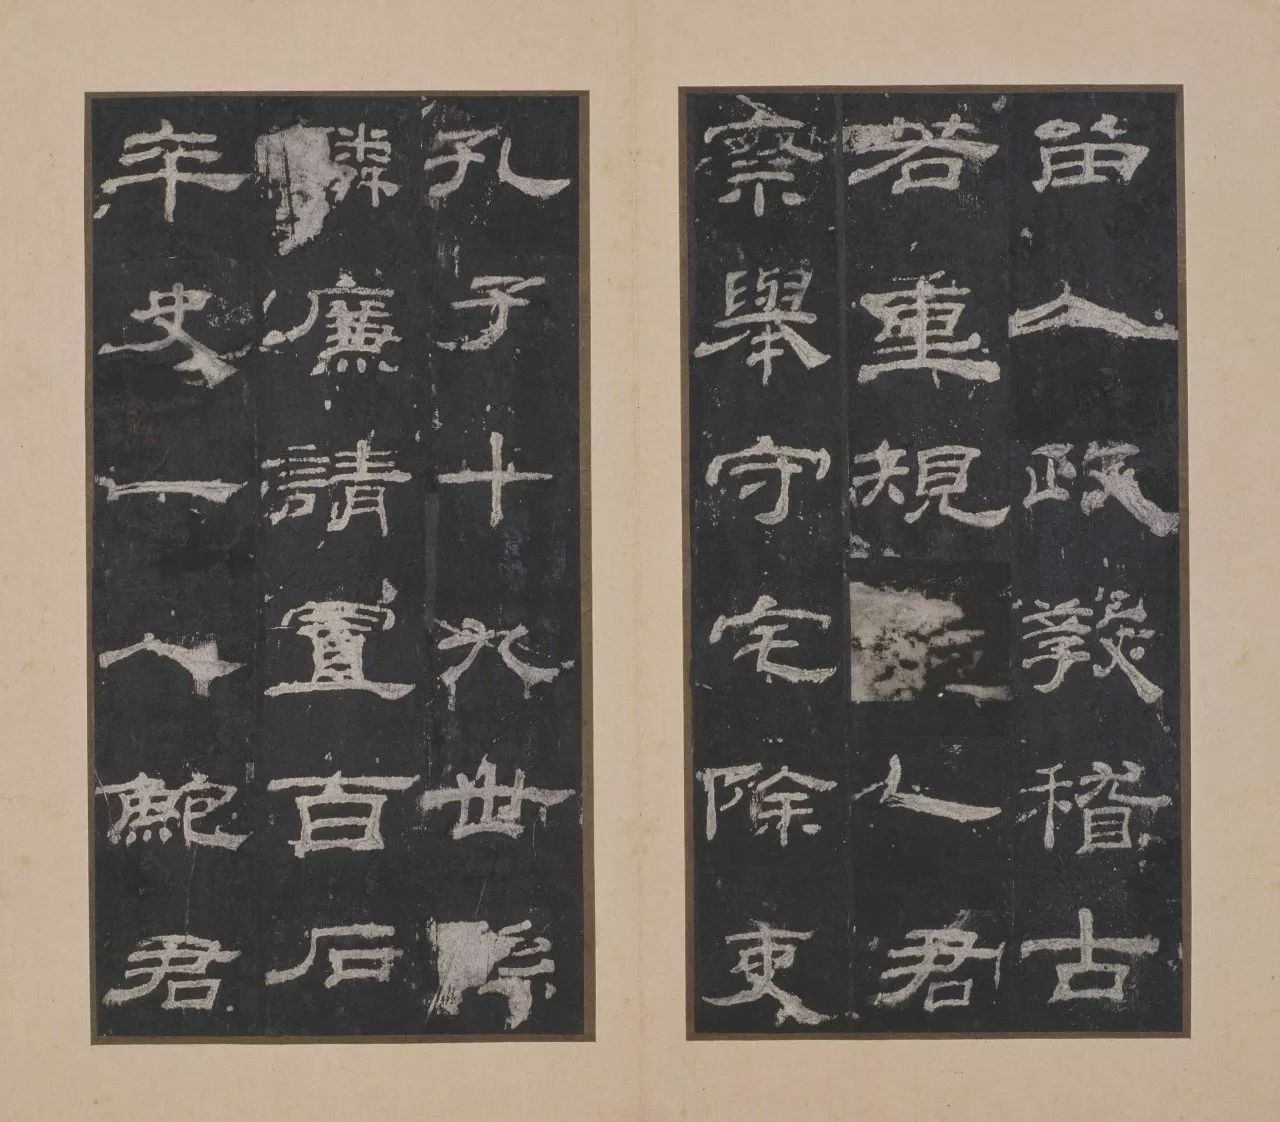 留人政教稽古
若重規乙君
察舉守宅除吏
孔子十九世
廉請置百石
卒史一人鮑君